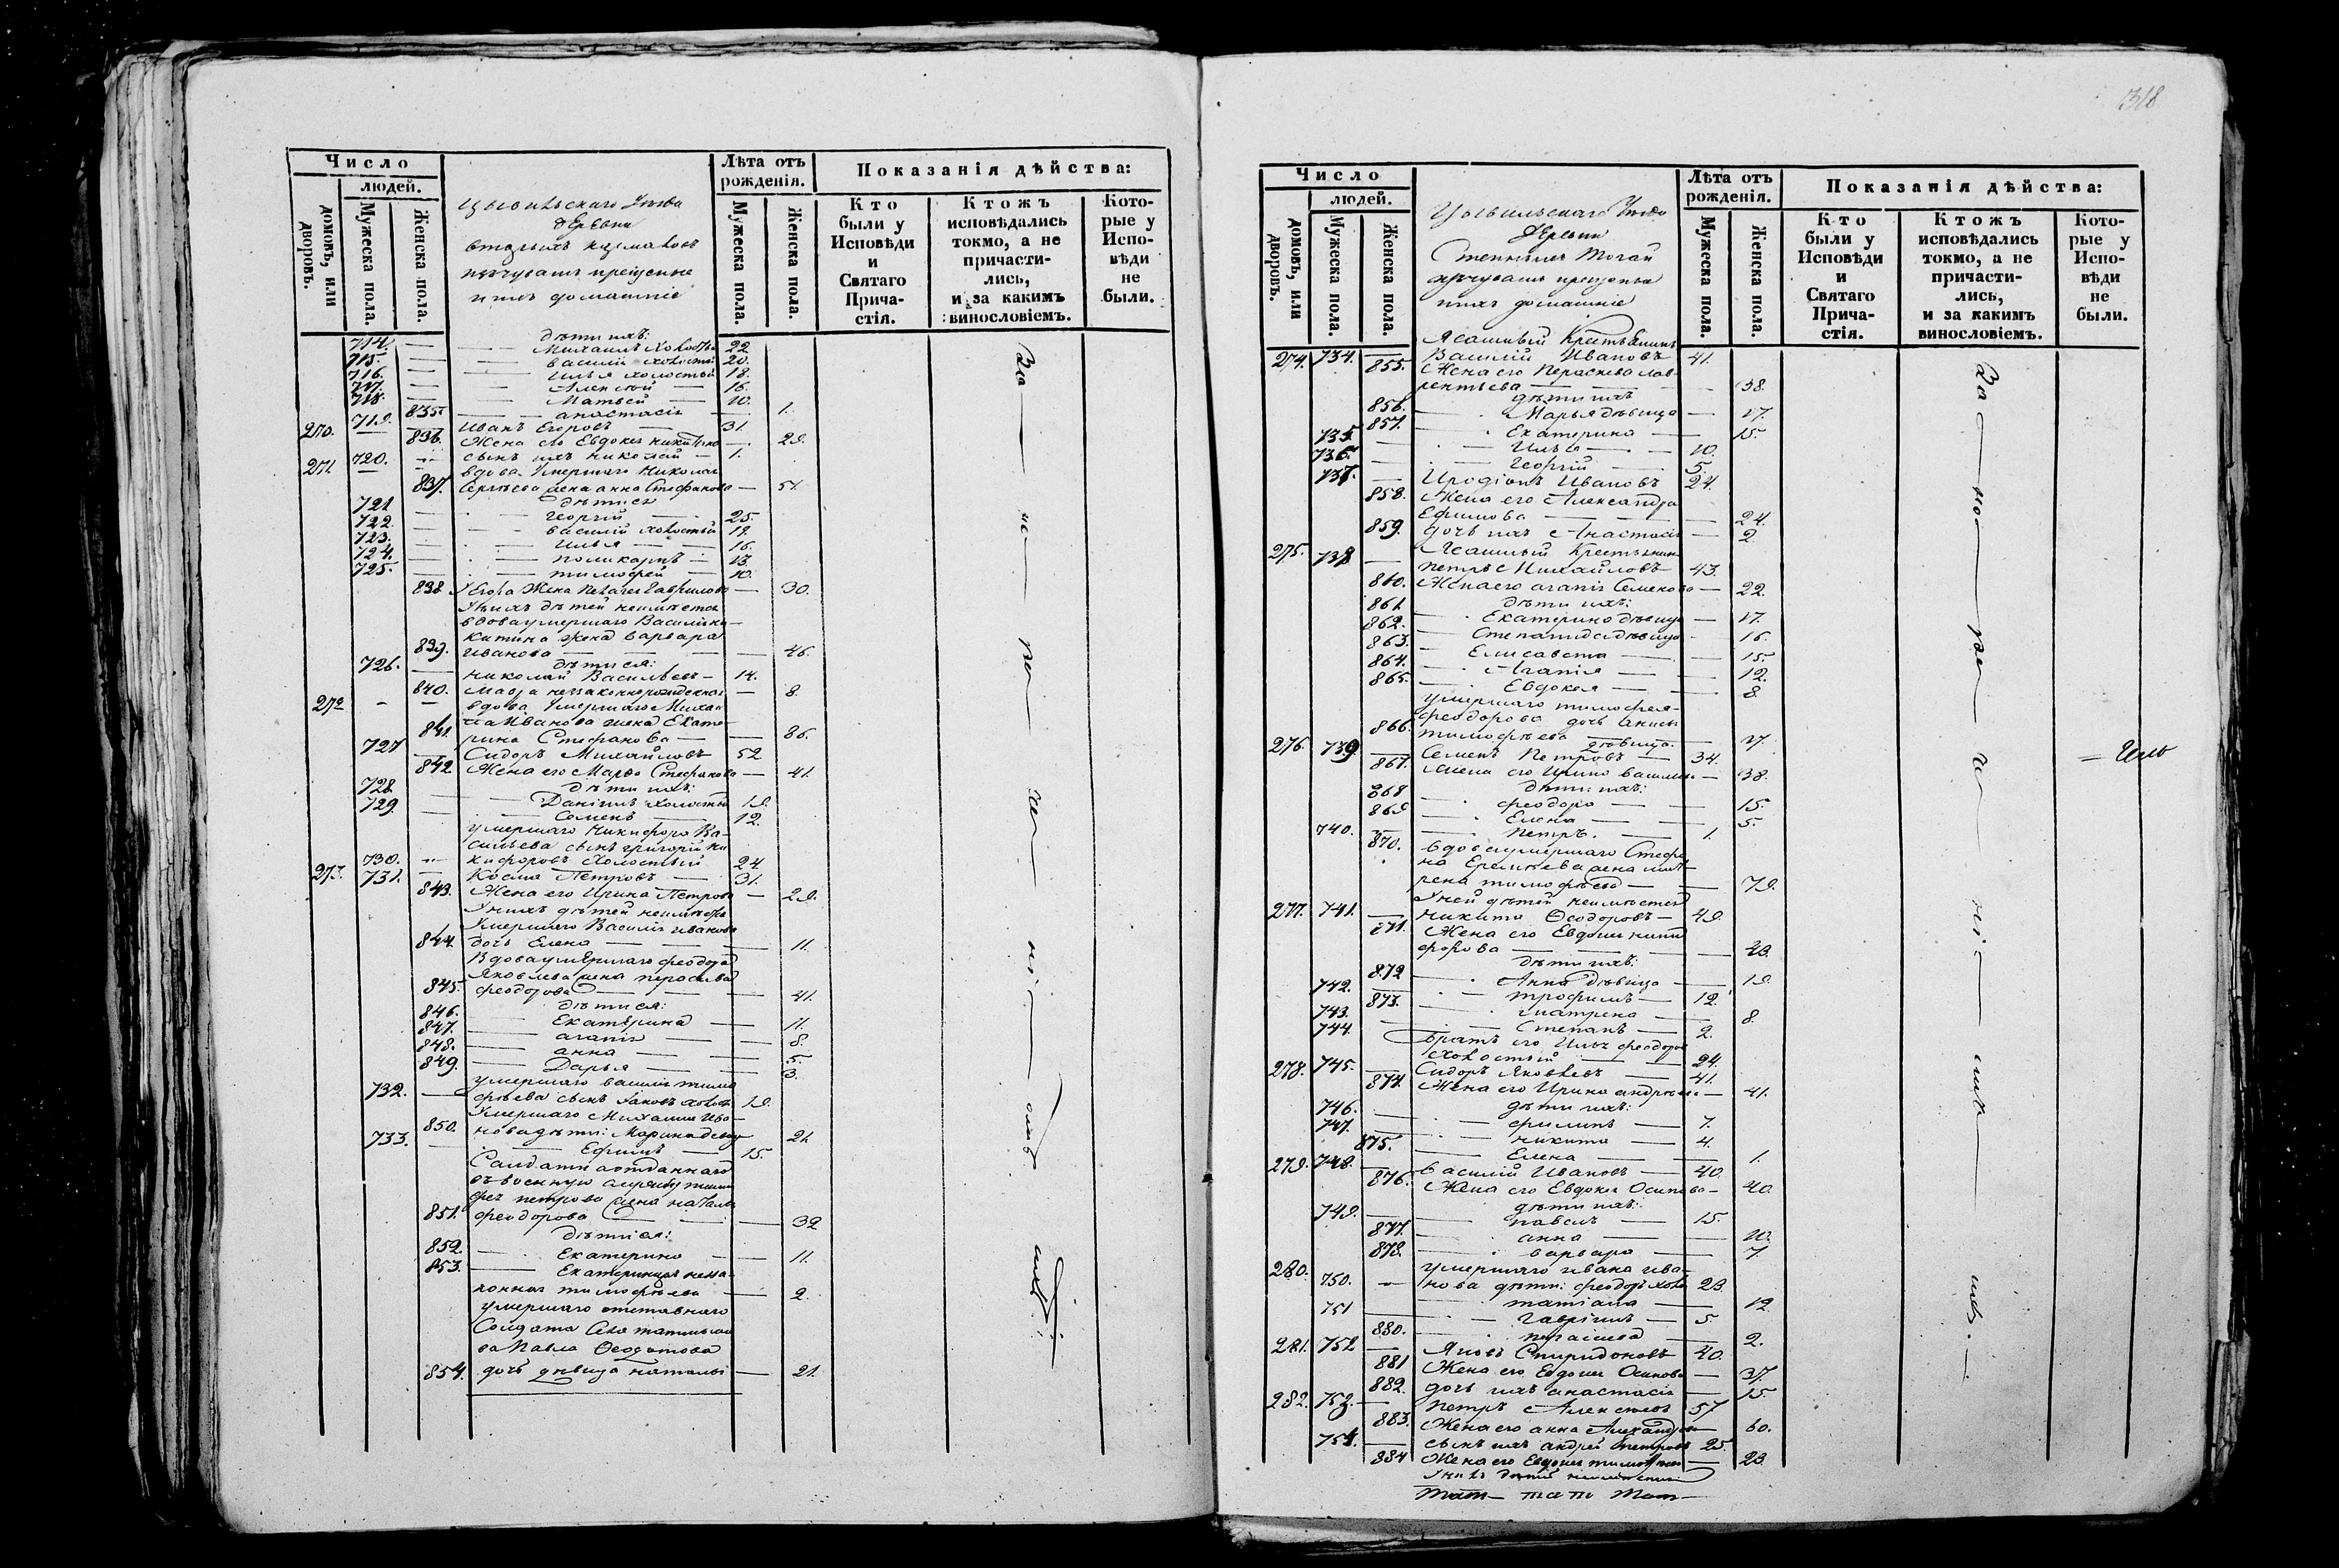 Число
людей.
домовъ, или дворовъ.
Мужеска пола.
Женска пола.
Цывильскаго Уезда
деревни
изъ чувашъ крещеные
и ихъ домашніе
Лѣта отъ рожденія.
Мужеска пола.
Женска пола.
Показанія дѣйства:
Кто были у Исповѣди и Святаго Прича-стія.
Ктожъ исповѣдались токмо, а не причасти-лись, и за какимъ винословіемъ.
Кото-рые у Испо-вѣди не были.
дѣти ихъ:
714. — Михаилъ холостъ 22
715. — василій холостъ 20.
716. — Илья холостый 18.
717. — Алексей — 16.
718. — Матвей — 10.
835. — анастасія — 1.
270. 719. — Иванъ Егоровъ — 31
836. Жена его Евдокея — 29.
720. сынъ ихъ николай — 1.
271. вдова Умершаго Николая
837. жена анна Стефанова — 51.
дѣти ея
721 — Георгій — 25.
722. — василій холостый 19.
723. — Илья — 16.
724. — поликарпъ — 13.
725. — тимофей — 10.
838 Егора Жена Гаврилова — 30.
У нихъ дѣтей неимѣется
вдова умершаго Василія ни-
китина жена варвара
839. иванова — 46.
дѣти ея:
726. — николай Васильевъ — 14.
840. Мавра незаконнорожденная — 8.
272 вдова Умершаго Михаи
ла Иванова жена Екате-
841. рина Стефанова — 86.
727 — Сидоръ Михайловъ 52
842 Жена его Марфа Стефанова — 41.
дѣти ихъ:
728 — Даніилъ холостый 19.
729 — Семенъ — 12.
умершаго Никифора Ва-
сильева сынъ григорій ни
730. кифоровъ Холостый 24
273. 731. — Косма Петровъ — 31.
843. Жена его Ирина Петрова — 29.
У нихъ дѣтей неимѣется
Умершаго Василія иванова
844. дочь Елена — 11.
Вдова умершаго феодора
Яковлева жена
845. феодорова — 41.
дѣти ея:
846. — Екатерина — 11.
847. — агапія — 8.
848. — анна — 5.
849. — Дарья — 3.
умершаго василія тимо
732. — фѣева сынъ Яковъ холост 19.
Умершаго Михаила Ива-
850. нова дѣти: Марина девиц 21
733. — Ефимъ — 15.
Солдата отданнаго
въ военную службу тимо
фея петрова жена наталья
851. феодорова — 32
дѣти ея:
852. — Екатерина — 11.
853. — Екатерина неза-
конная тимофѣева — 2.
умершаго отставнаго
Солдата
Павла
854. дочь дѣвица наталья — 21.
За не ре
318
Число
людей.
домовъ, или дворовъ.
Мужеска пола.
Женска пола.
Цывильскаго Уезда
деревни
изъ чувашъ крещеные
и ихъ домашніе
Лѣта отъ рожденія.
Мужеска пола.
Женска пола.
Показанія дѣйства:
Кто были у Исповѣди и Святаго Прича-стія.
Ктожъ исповѣдались токмо, а не причасти-лись, и за какимъ винословіемъ.
Кото-рые у Испо-вѣди не были.
Ясашный Крестьянинъ
274. 734. — Василій Ивановъ 41.
855. Жена его Параскева Лав-
рентьева — 38.
дѣти ихъ
856. — Марья дѣвица — 17.
857. — Екатерина — 15.
735. — Илья — 10.
736. — Георгій — 5.
737. — Иродіонъ Ивановъ 24.
858. Жена его Александра
Ефимова — 24.
859. дочь ихъ Анастасія — 2
275. 738 Ясашный Крестьянин
петръ Михайловъ 43.
860. Жена его агапія Семенова — 22.
дѣти ихъ:
861 — Екатерина дѣвица — 17.
862. — Степанида дѣвица — 16.
863. — Елисавета — 15.
864. — Агапія — 12.
865. — Евдокея — 8.
умершаго тимофея
феодорова дочь анисья
866. тимофѣева дѣвица — 17.
276. 739 — Семенъ Петровъ — 34.
867. Жена его Ирина василье — 38.
дѣти ихъ:
868 — феодора — 15.
869 — Елена — 5.
740. — Петръ. — 1.
870. вдова умершаго Стефа
на жена мат-
рена тимофѣева — 79.
У ней дѣтей неимѣется
277. 741. — Никита Феодоровъ — 49.
871. Жена его Евдокея ники
форова — 43.
дѣти ихъ:
872 — Анна дѣвица — 19.
742. — трофимъ — 12.
873. — матрена — 8.
743. — Степанъ — 2.
744. братъ его Илья феодоров
холостый — 24.
278. 745. — Сидоръ Яковлевъ 41.
874. Жена его Ирина андреева — 41.
дѣти ихъ:
746. — филипъ — 7.
747. — никита — 4.
875. — Елена — 1.
279. 748. — Василій Ивановъ — 40.
876. Жена его Евдокея Осипова — 40.
дѣти ихъ:
749. — павелъ — 15.
877. — анна — 10.
878. — варвара — 7.
280. умершаго ивана ива-
750. — нова дѣти: феодоръ холо 23
— татіана — 12.
751 — Гавріилъ — 5.
880. — пелагея — 2.
281. 752 — Яковъ Спиридоновъ 40.
881 Жена его Евдокея Осипова — 37.
882. дочь ихъ анастасія — 15.
282. 753. — Петръ Алексѣевъ 57
883. Жена его анна Александров — 60.
754. — сынъ ихъ андрей петровъ 25.
884 Жена его Евдокея — 23.
У нихъ дѣтей неимѣется